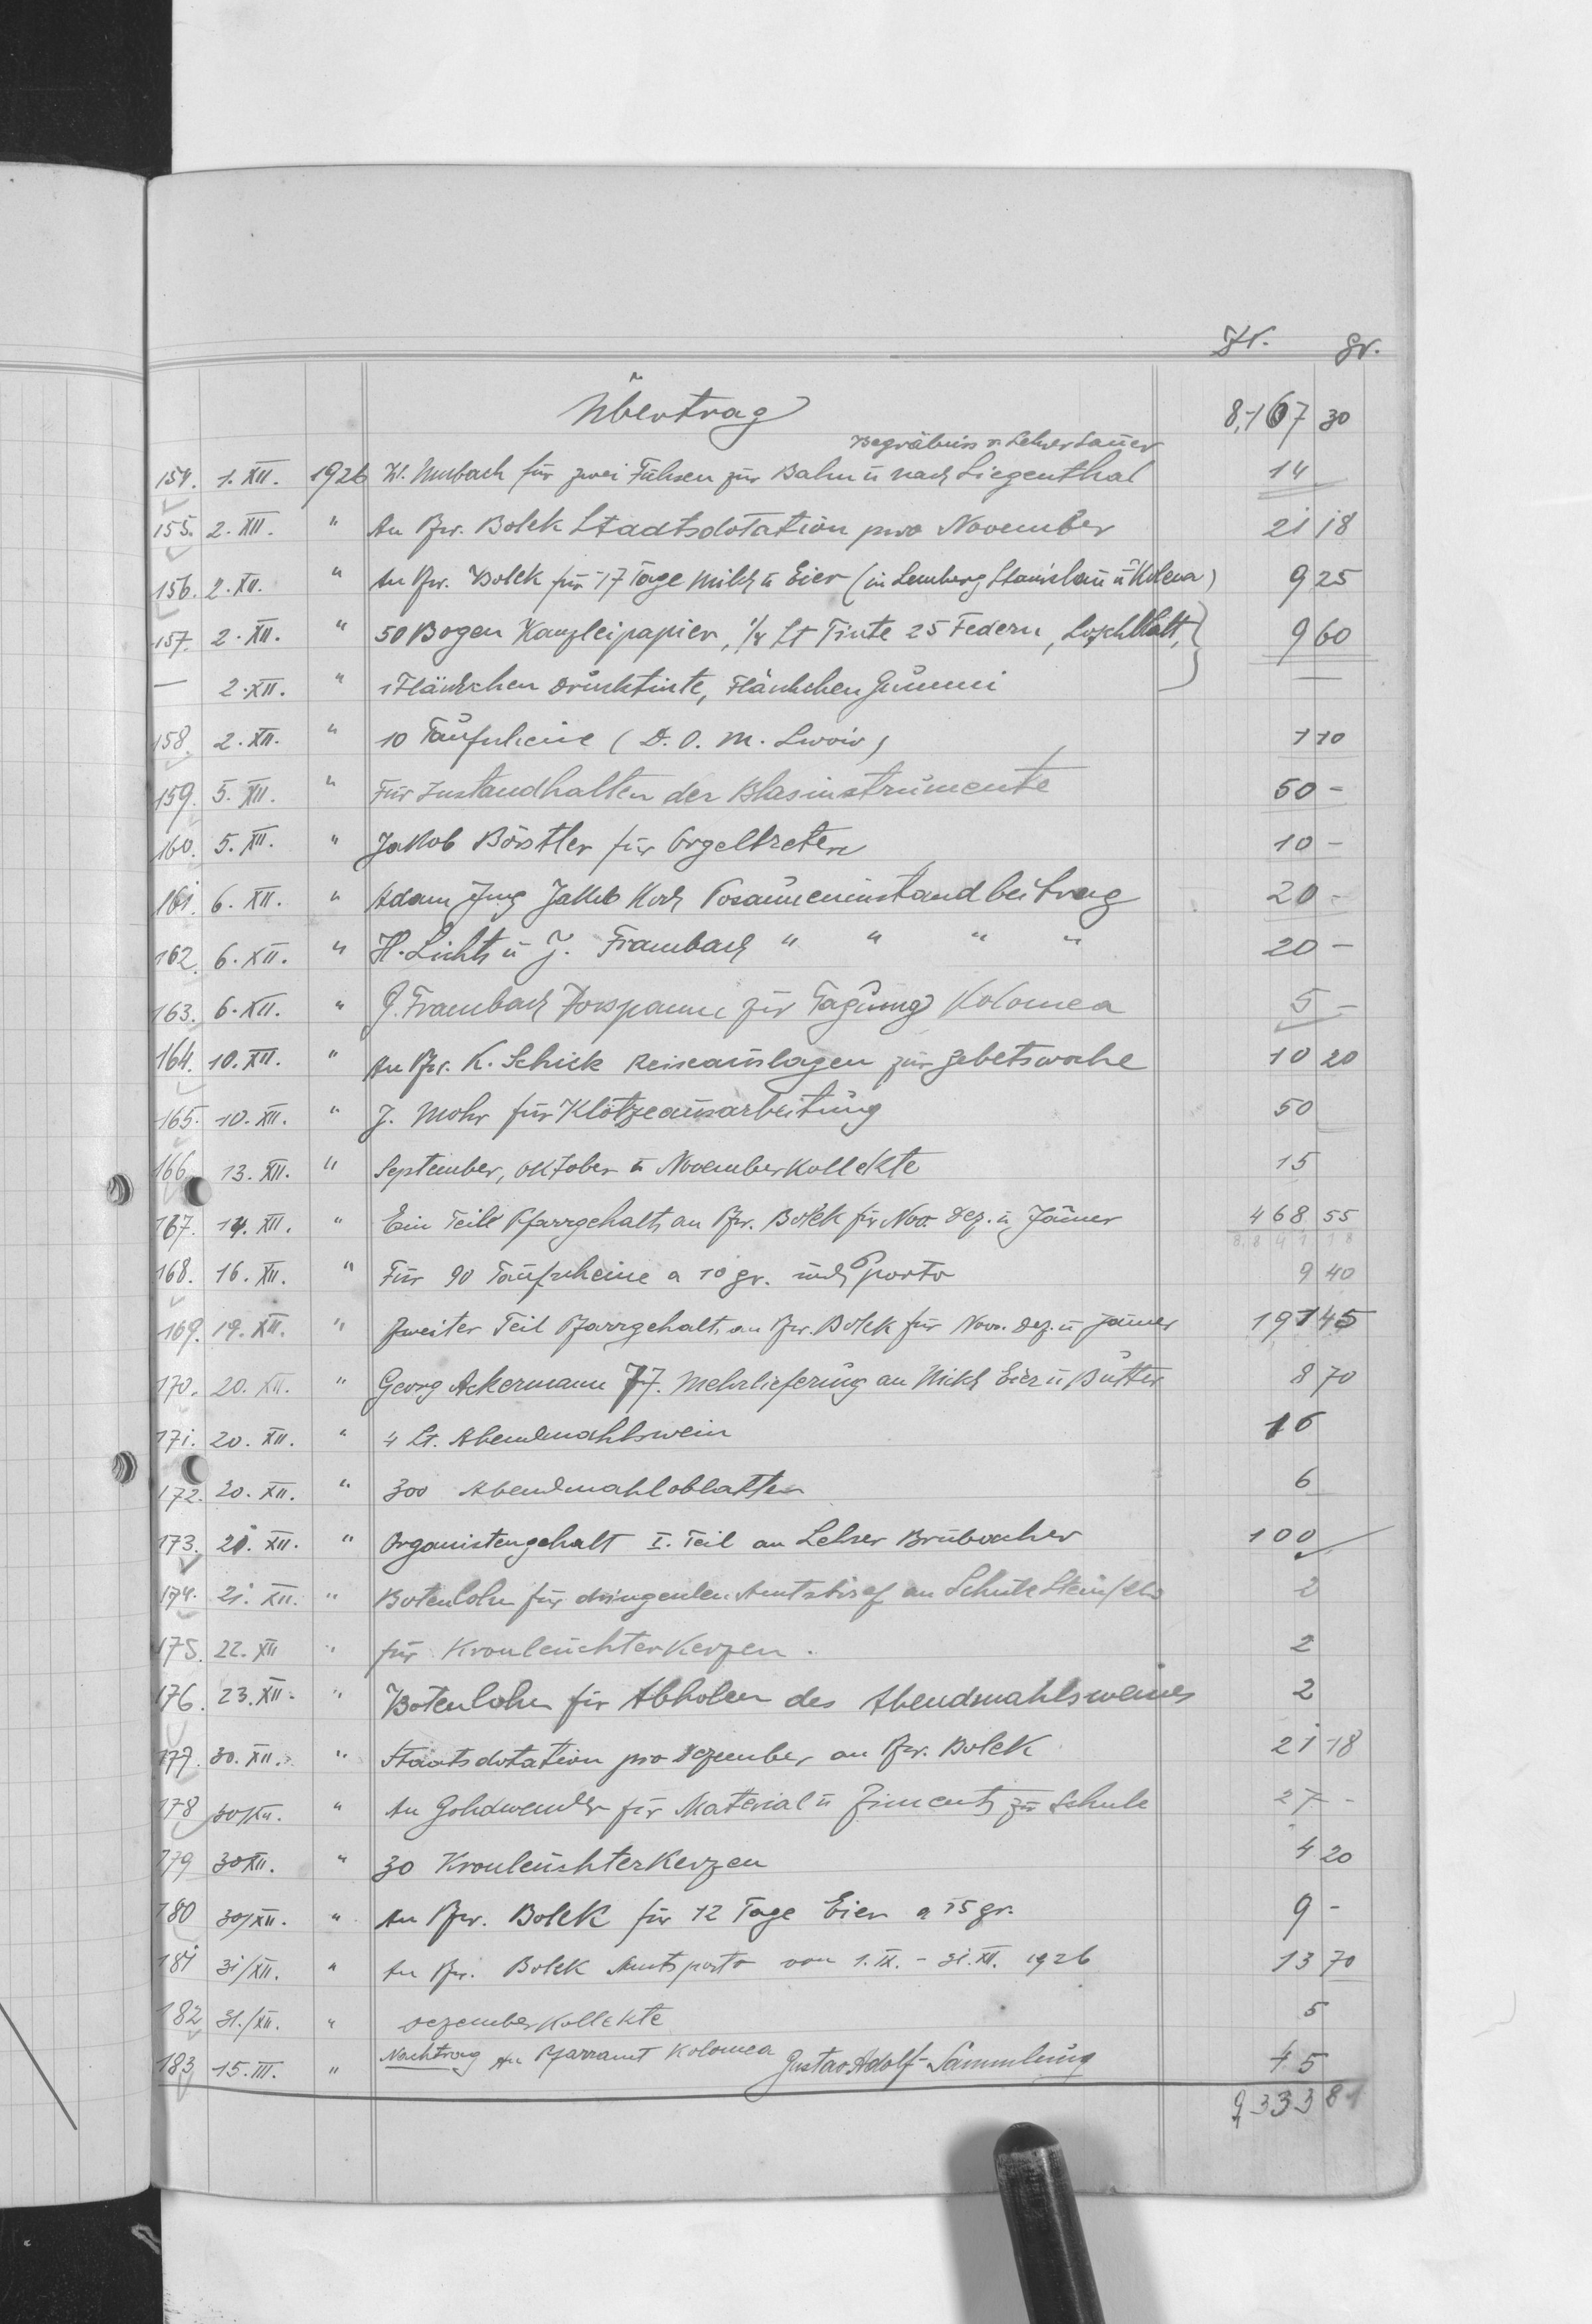 Zł. gr.
Übertrag 8,167 30
Begräbnis v. Lehrer Lauer
154. 1. XII. 1926 H. Murbach für zwei Fuhren zur Bahn u nach Siegenthal 14
155. 2. XII. " An Pfr. Bolek Staatsdotation pro November 21 18
156. 2. XII. " An Pfr. Bolek für 17 Tage Milch u Eier (in Lemberg Stanislau u Kolomea) 9 25
157. 2. XII. " 50 Bogen Kanzleipapier, 1/4 Lt Tinte 25 Federn, Loschblatt, 9 60
— 2. XII. " 1 Fläschchen Drucktinte, Fläschchen Gummi —
158. 2. XII. " 10 Taufscheine (D. O. M. Lwow) 1 10
159. 5. XII. " Für Instandhalten der Blasinstrumente 50 -
160. 5. XII. " Jakob Börstler für Orgeltreten 10 -
161. 6. XII. " Adam Jung Jakob Koch Posauneninstandbeitrag 20 -
162. 6. XII. " H. Lichts u J. Frambach " " " " 20 -
163. 6. XII. " J. Frambach Vorspanne zur Tagung Kolomea 5 -
164. 10. XII. " An Pfr. K. Schick Reiseauslagen zur Gebetswoche 10 20
165. 10. XII. " J. Mohr für Klötzeausarbeitung 50
166. 13. XII. " September, Oktober u Novemberkollekte 15
167. 14. XII. " Ein Teil Pfarrgehalt an Pfr. Bolek für Nov. Dez. u. Jänner 468 55
8.841 18
168. 16. XII. " Für 90 Taufscheine a 10 gr. und Porto 9 40
169. 19. XII. " Zweiter Teil Pfarrgehalt, an Pfr. Bolek für Nov. Dez. u Jänner 191 45
170. 20. XII. " Georg Ackermann 77. Mehrlieferung an Milch Eier u Butter 8 70
171. 20. XII. " 4 Lt. Abendmahlswein 16
172. 20. XII. " 300 Abendmahloblatten 6
173. 21. XII. " Organistengehalt I. Teil an Lehrer Brubacher 100
174. 21. XII. " Botenlohn für dringenden Amtsbrief an Schule Steinfels 2
175. 22. XII " für Kronleuchterkerzen. 2
176. 23. XII. " Botenlohn für Abholen des Abendmahlsweines 2
177. 30. XII. " Staatsdotation pro Dezember an Pfr. Bolek 21 18
178 30/XII. " An für Material u Ziment zur Schule 27 -
179 30 XII. " 30 Kronleuchterkerzen 4 20
180 30/XII. " An Pfr. Bolek für 12 Tage Eier a 75 gr. 9 -
181 31/XII. " An Pfr. Bolek Amtsporto von 1. IX. - 31. XII. 1926 13 70
182 31./XII. " Dezemberkollekte 5
183 15. III. " Nachtrag An Pfarramt Kolomea Gustav Adolf-Sammlung 45
9333 81